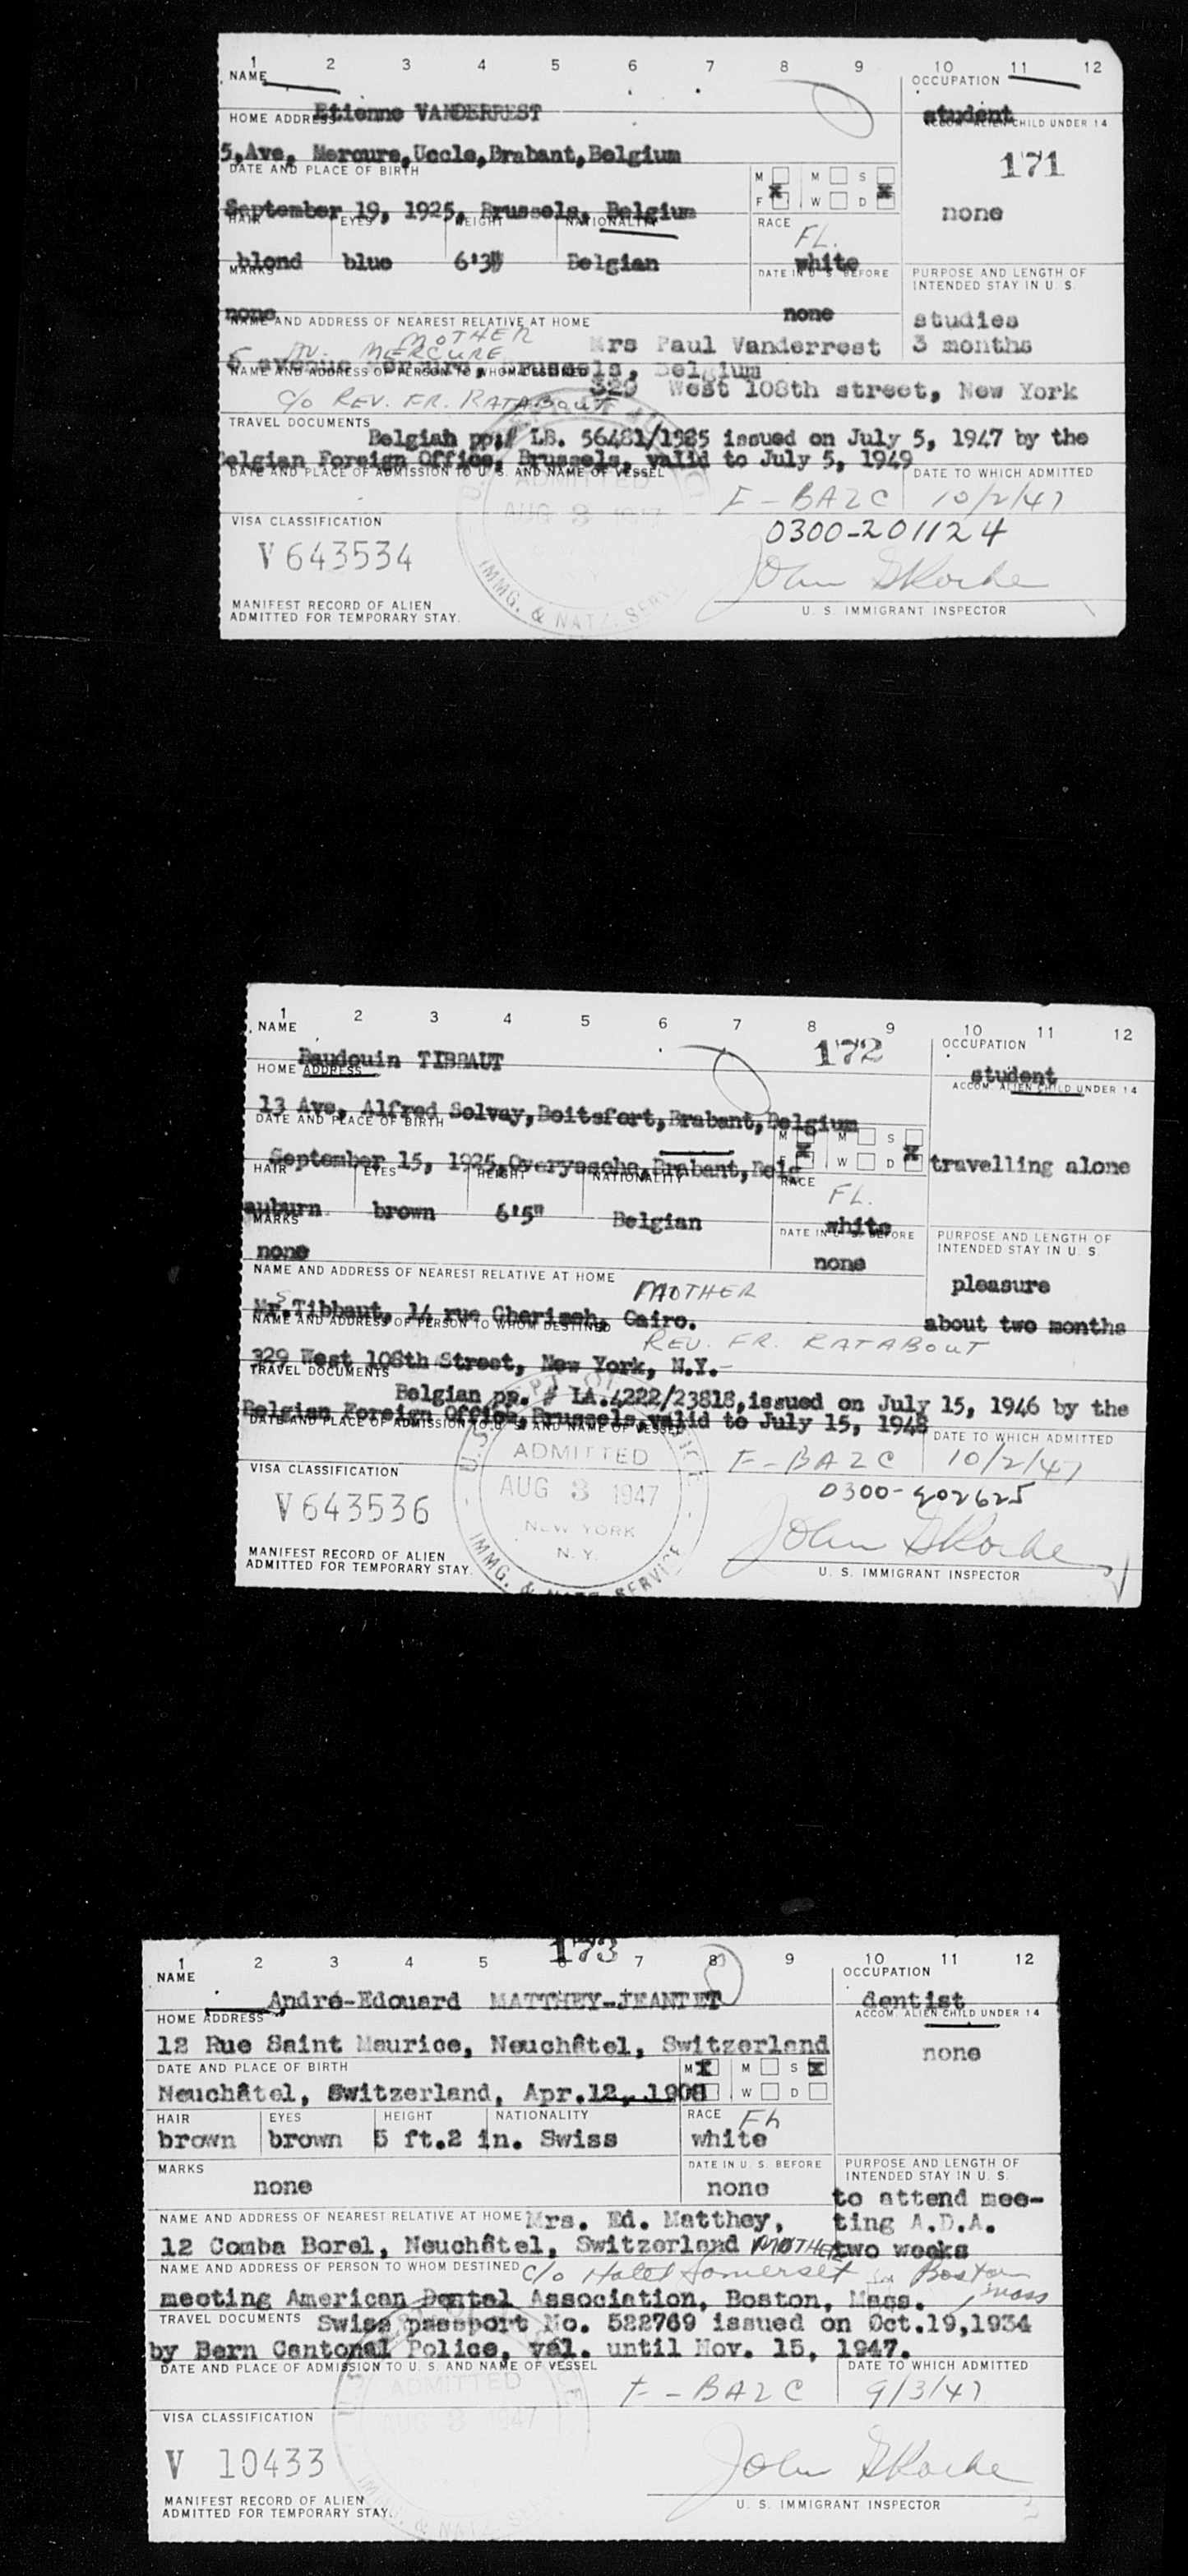 1 2 3 4 5 6 7 8 9 10 11 12
NAME
OCCUPATION
Etienne VANDERREST
student
HOME ADDRESS
ACCOM. ALIEN CHILD UNDER 14
5,Ave, Mercure,Uccle,Brabant,Belgium
171
DATE AND PLACE OF BIRTH
M M S
x x
F W D
September 19, 1925, Brussels, Belgium
none
HAIR EYES HEIGHT NATIONALITY RACE
FL.
blond blue 6'3" Belgian white
MARKS
DATE IN U. S. BEFORE
PURPOSE AND LENGTH OF
INTENDED STAY IN U. S.
none none
studies
NAME AND ADDRESS OF NEAREST RELATIVE AT HOME
MOTHER
Mrs Paul Vanderrest 3 months
5 AV. MERCURE
5 avenue Mercure, Brussels, Belgium
NAME AND ADDRESS OF PERSON TO WHOM DESTINED
329 West 108th street, New York
C/o REV. FR. RATABOUT
TRAVEL DOCUMENTS
Belgian pp;# LB. 56481/1585 issued on July 5, 1947 by the
Belgian Foreign Office, Brussels, valid to July 5, 1949
DATE AND PLACE OF ADMISSION TO U. S. AND NAME OF VESSEL
DATE TO WHICH ADMITTED
ADMITTED
F - BA2C 10/2/47
AUG 3 1947
VISA CLASSIFICATION
0300-201124
V 643534
IMMG. & NATZ. SERV
MANIFEST RECORD OF ALIEN
ADMITTED FOR TEMPORARY STAY.
U. S. IMMIGRANT INSPECTOR
1 2 3 4 5 6 7 8 9 10 11 12
NAME
172
OCCUPATION
Baudouin TIBBAUT
student
HOME ADDRESS
ACCOM. ALIEN CHILD UNDER 14
13 Ave, Alfred Solvay,Boitsfort,Brabant,Belgium
DATE AND PLACE OF BIRTH
M M S
x x
F W D
September 15, 1925,Overyssche,Brabant,Belg
travelling alone
HAIR EYES HEIGHT NATIONALITY RACE
FL.
auburn brown 6'5" Belgian white
MARKS
DATE IN U. S. BEFORE
PURPOSE AND LENGTH OF
INTENDED STAY IN U. S.
none none
pleasure
NAME AND ADDRESS OF NEAREST RELATIVE AT HOME
MOTHER
Mrs.Tibbaut, 14 rue Cherimeh, Cairo.
about two months
NAME AND ADDRESS OF PERSON TO WHOM DESTINED
REV. FR. RATABOUT
329 West 108th Street, New York, N.Y.-
TRAVEL DOCUMENTS
Belgian pp. # LA.4222/23818,issued on July 15, 1946 by the
Belgian Foreign Office, Brussels,valid to July 15, 1948
DATE AND PLACE OF ADMISSION TO U. S. AND NAME OF VESSEL
DATE TO WHICH ADMITTED
ADMITTED
F - BA2C 10/2/47
VISA CLASSIFICATION
AUG 3 1947
0300-202625
V 643536
NEW YORK
N. Y.
IMMG. & NATZ. SERVICE
MANIFEST RECORD OF ALIEN
ADMITTED FOR TEMPORARY STAY.
U. S. IMMIGRANT INSPECTOR
173
1 2 3 4 5 6 7 8 9 10 11 12
NAME
OCCUPATION
André-Edouard MATTHEY-JEANTET
dentist
HOME ADDRESS
ACCOM. ALIEN CHILD UNDER 14
12 Rue Saint Maurice, Neuchâtel, Switzerland
none
DATE AND PLACE OF BIRTH
M x M S x
Neuchâtel, Switzerland, Apr.12, 1908
W D
HAIR EYES HEIGHT NATIONALITY RACE
brown brown 5 ft.2 in. Swiss white
MARKS
DATE IN U. S. BEFORE
PURPOSE AND LENGTH OF
INTENDED STAY IN U. S.
none none
to attend mee-
NAME AND ADDRESS OF NEAREST RELATIVE AT HOME
Mrs. Ed. Matthey,
ting A.D.A.
12 Comba Borel, Neuchâtel, Switzerland MOTHER
two weeks
NAME AND ADDRESS OF PERSON TO WHOM DESTINED
c/o Hotel Somerset Boston
Mass
meeting American Dental Association, Boston, Mass.
TRAVEL DOCUMENTS
Swiss passport No. 522769 issued on Oct.19,1934
by Bern Cantonal Police, val. until Nov. 15, 1947.
DATE AND PLACE OF ADMISSION TO U. S. AND NAME OF VESSEL
DATE TO WHICH ADMITTED
ADMITTED
F - BA2C 9/3/47
AUG 3 1947
VISA CLASSIFICATION
V 10433
MANIFEST RECORD OF ALIEN
ADMITTED FOR TEMPORARY STAY.
U. S. IMMIGRANT INSPECTOR